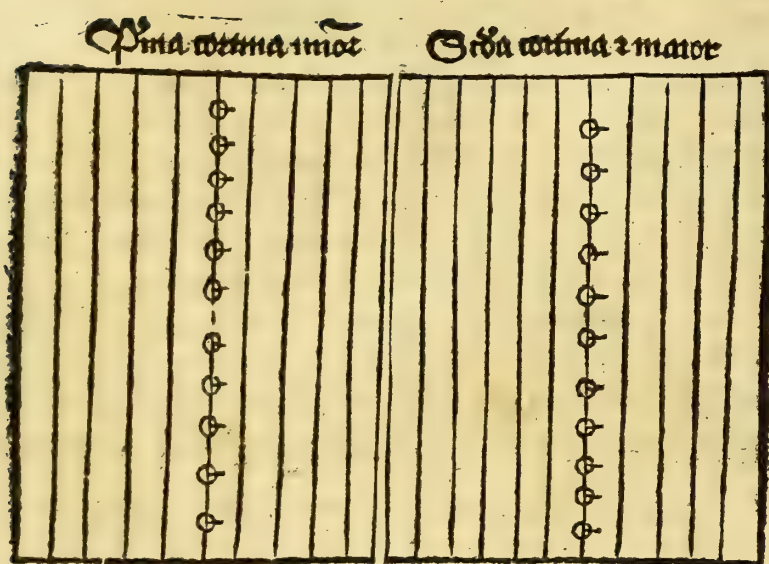 P̄ma cortina minor̄
Scd̄a cortina ⁊ maior